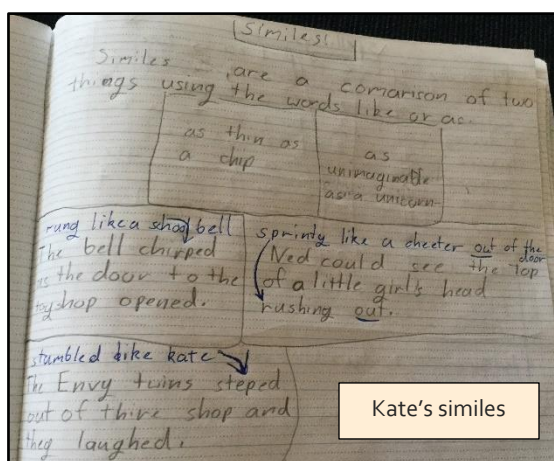 Similes!
Similes are a comarison of two
things using the words like or as.
as thin as
a chip
as
unimaginable
as a unicorn
rung like a school bell
The bell chirped
as the door to the
toyshop opened.
sprinty like a cheeter out of the
door
Ned could see the top
of a little girl's head
rushing out.
stumbled like kate
The Envy twins steped
out of thire shop and
they laughed.
Kate's similes